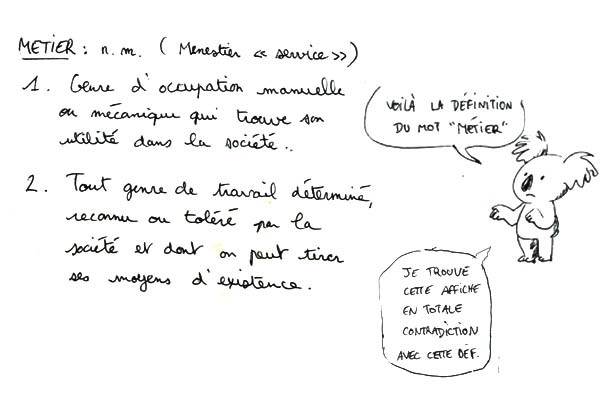 METIER : n.m. ( Menestier « service »)
1. Genre d'occupation manuelle
ou mécanique qui trouve son
utilité dans la société..
2. Tout genre de travail déterminé,
reconnu ou toléré par la
société et dont on peut tirer
ses moyens d'existence.
VOILÀ LA DÉFINITION
DU MOT "MÉTIER"
JE TROUVE
CETTE AFFICHE
EN TOTALE
CONTRADICTION
AVEC CETTE DÉF.